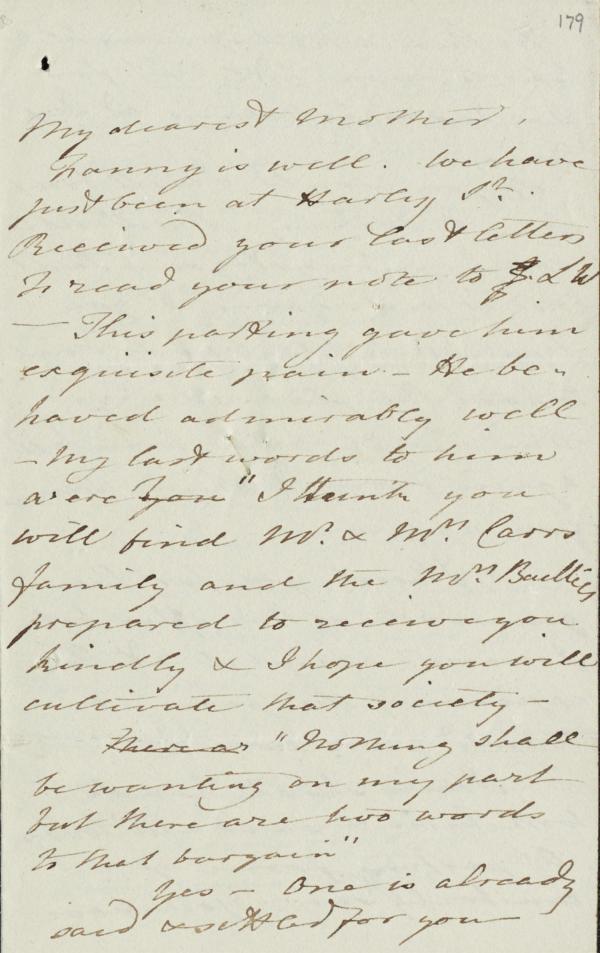 179
My dearest Mother,
Fanny is well. We have
just been at Harley St.
Received your last letters
to read your note to L W
— This parting gave him
exquisite pain — He be-
haved admirably well
— My last words to him
were "I think you
will find Mr. & Mrs. Carrs
family and the Mrs. Baillies
prepared to receive you
kindly & I hope you will
cultivate that society —
There are "Nothing shall
be wanting on my part
but there are two words
to that bargain"
Yes — One is already
said & settled for you —